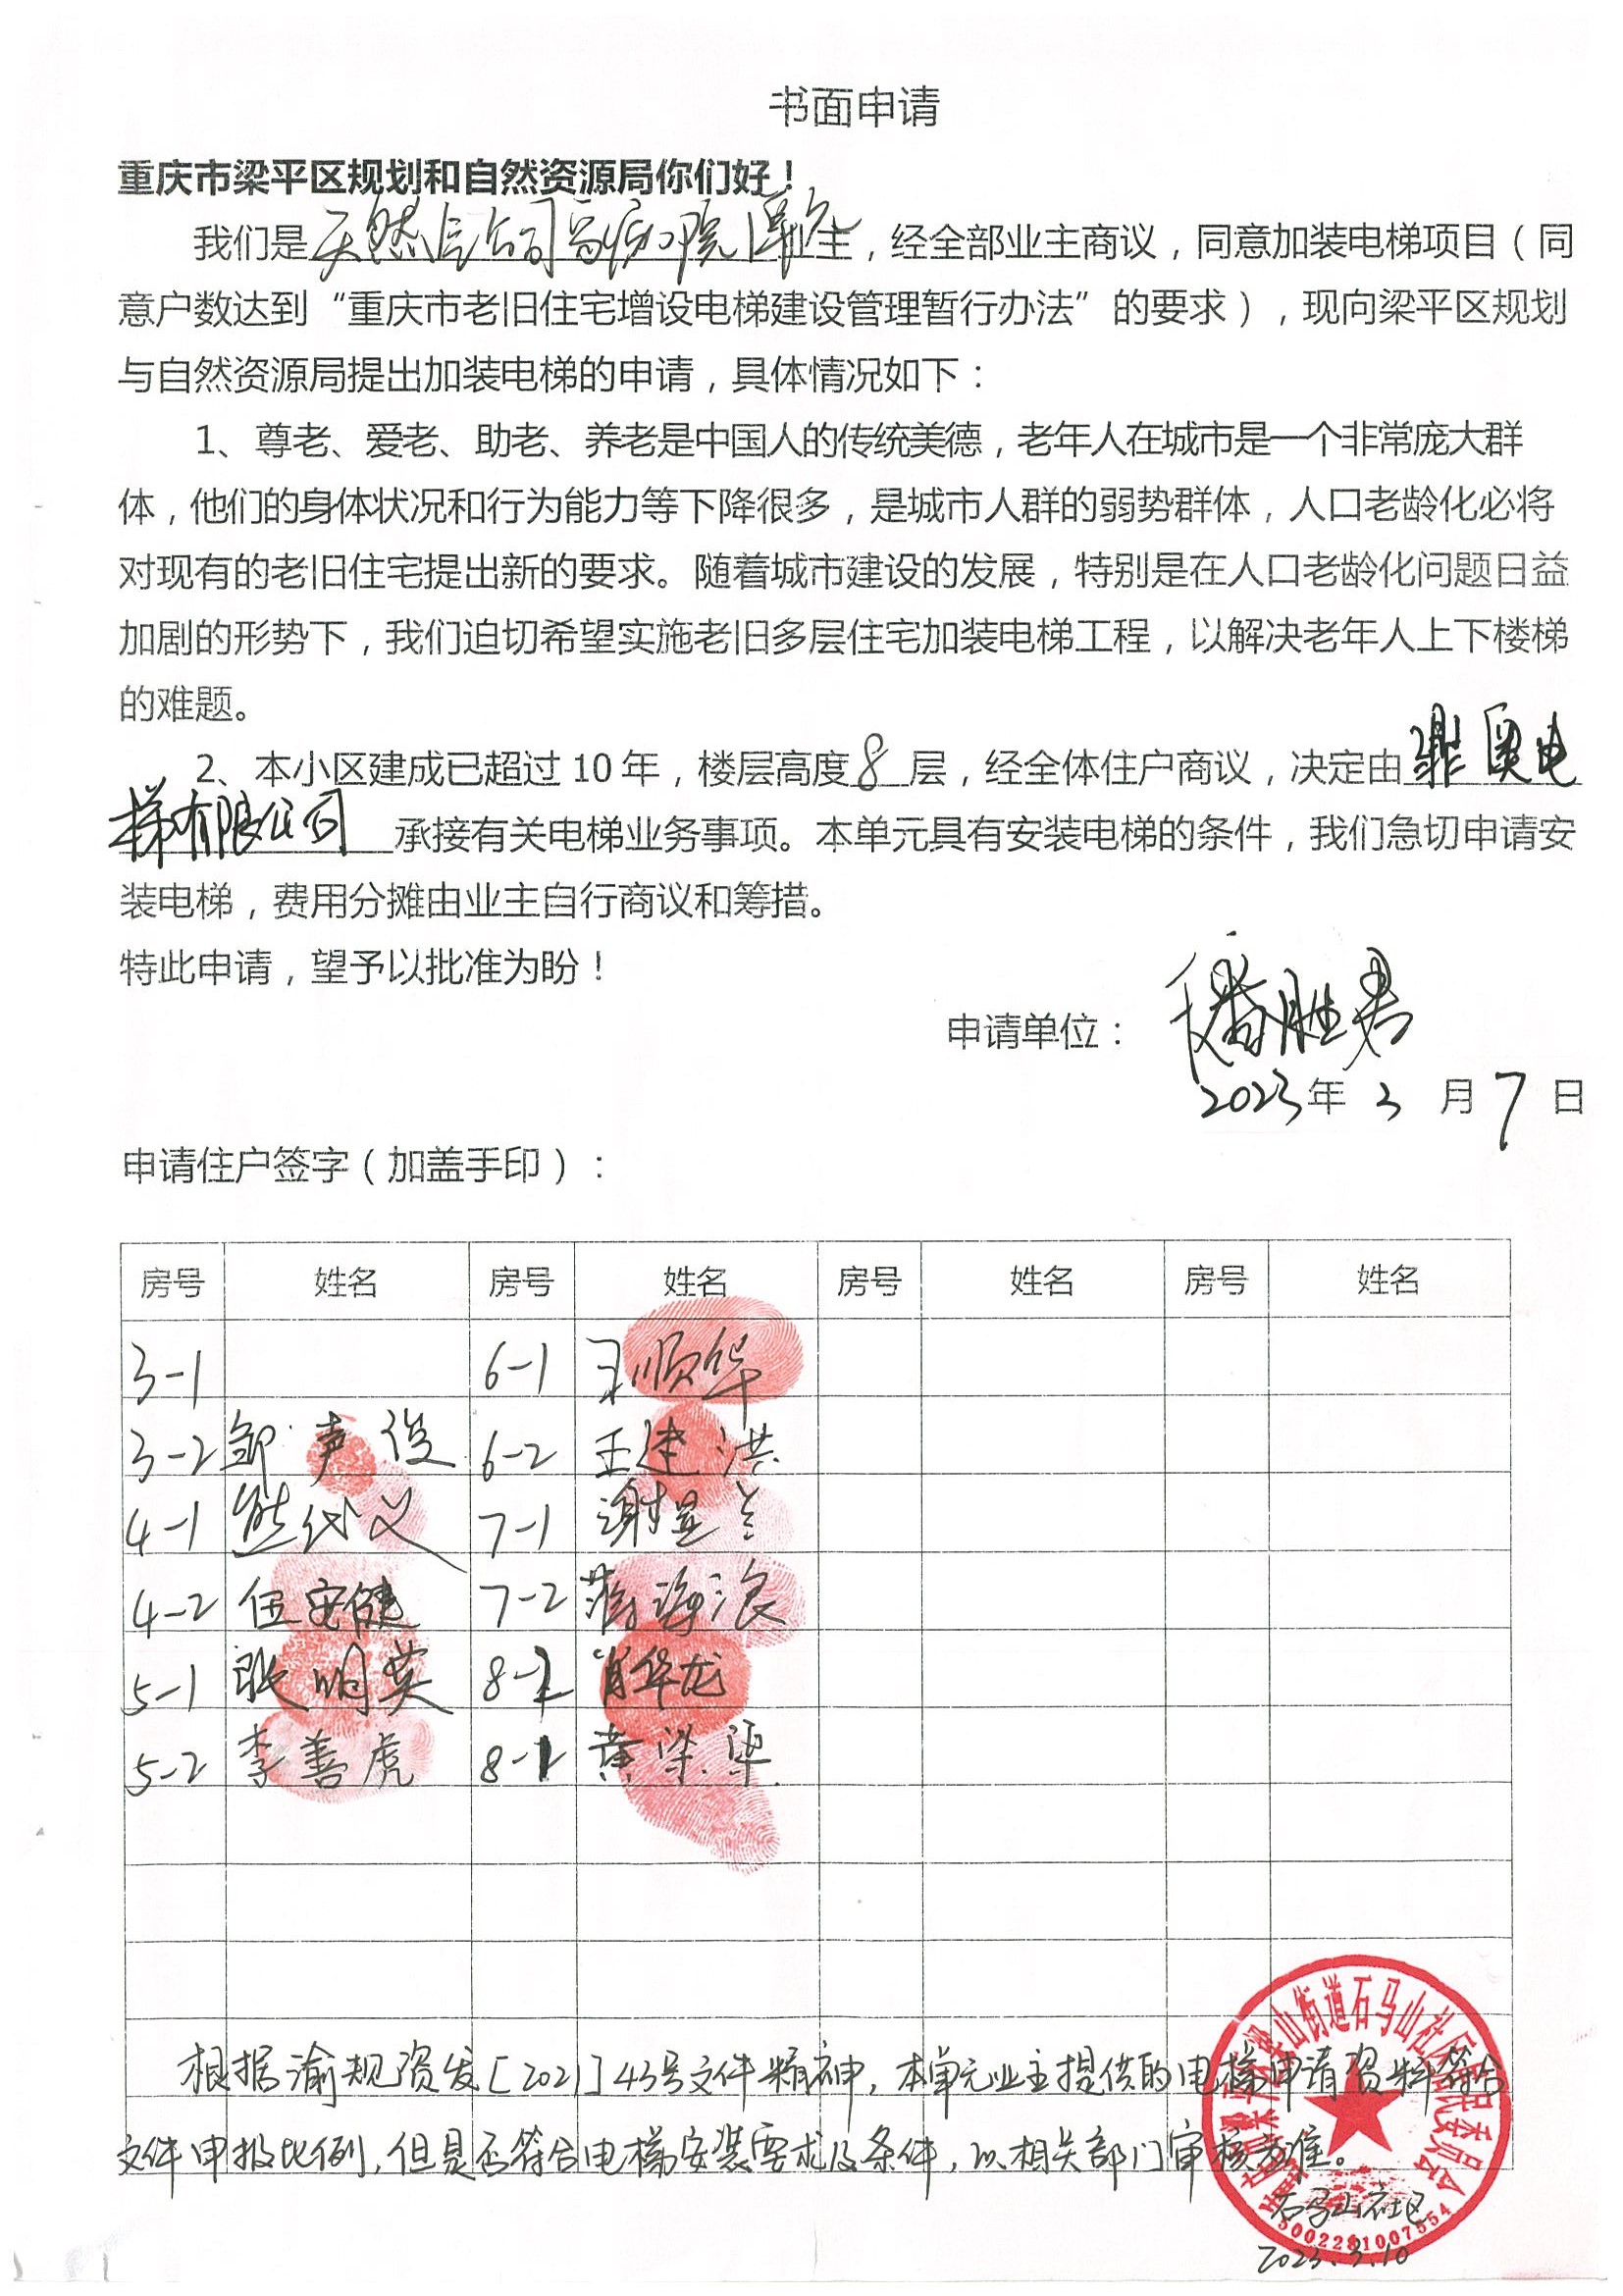 书面申请
重庆市梁平区规划和自然资源局你们好！
我们是天然气公司 院 单元业主，经全部业主商议，同意加装电梯项目（同
意户数达到“重庆市老旧住宅增设电梯建设管理暂行办法”的要求），现向梁平区规划
与自然资源局提出加装电梯的申请，具体情况如下：
1、尊老、爱老、助老、养老是中国人的传统美德，老年人在城市是一个非常庞大群
体，他们的身体状况和行为能力等下降很多，是城市人群的弱势群体，人口老龄化必将
对现有的老旧住宅提出新的要求。随着城市建设的发展，特别是在人口老龄化问题日益
加剧的形势下，我们迫切希望实施老旧多层住宅加装电梯工程，以解决老年人上下楼梯
的难题。
2、本小区建成已超过10年，楼层高度8层，经全体住户商议，决定由 奥电
梯有限公司承接有关电梯业务事项。本单元具有安装电梯的条件，我们急切申请安
装电梯，费用分摊由业主自行商议和筹措。
特此申请，望予以批准为盼！
申请单位： 潘胜
2023年3月7日
申请住户签字（加盖手印）：
房号 姓名 房号 姓名 房号 姓名 房号 姓名
3-1 6-1 王顺华
3-2 邹声俊 6-2 王建洪
4-1 熊代义 7-1 谢显兰
4-2 伍安健 7-2 蒋海浪
5-1 张明英 8- 肖华龙
5-2 李善虎 8- 黄梁
根据渝规资发[2021]43号文件精神，本单元业主提供的电梯申请资料符合
文件申报比例，但是否符合电梯安装要求及条件，以相关部门审核为准。
梁山街道石马山社区居民委员会
石马山社区
5002281007554
2023.3.10